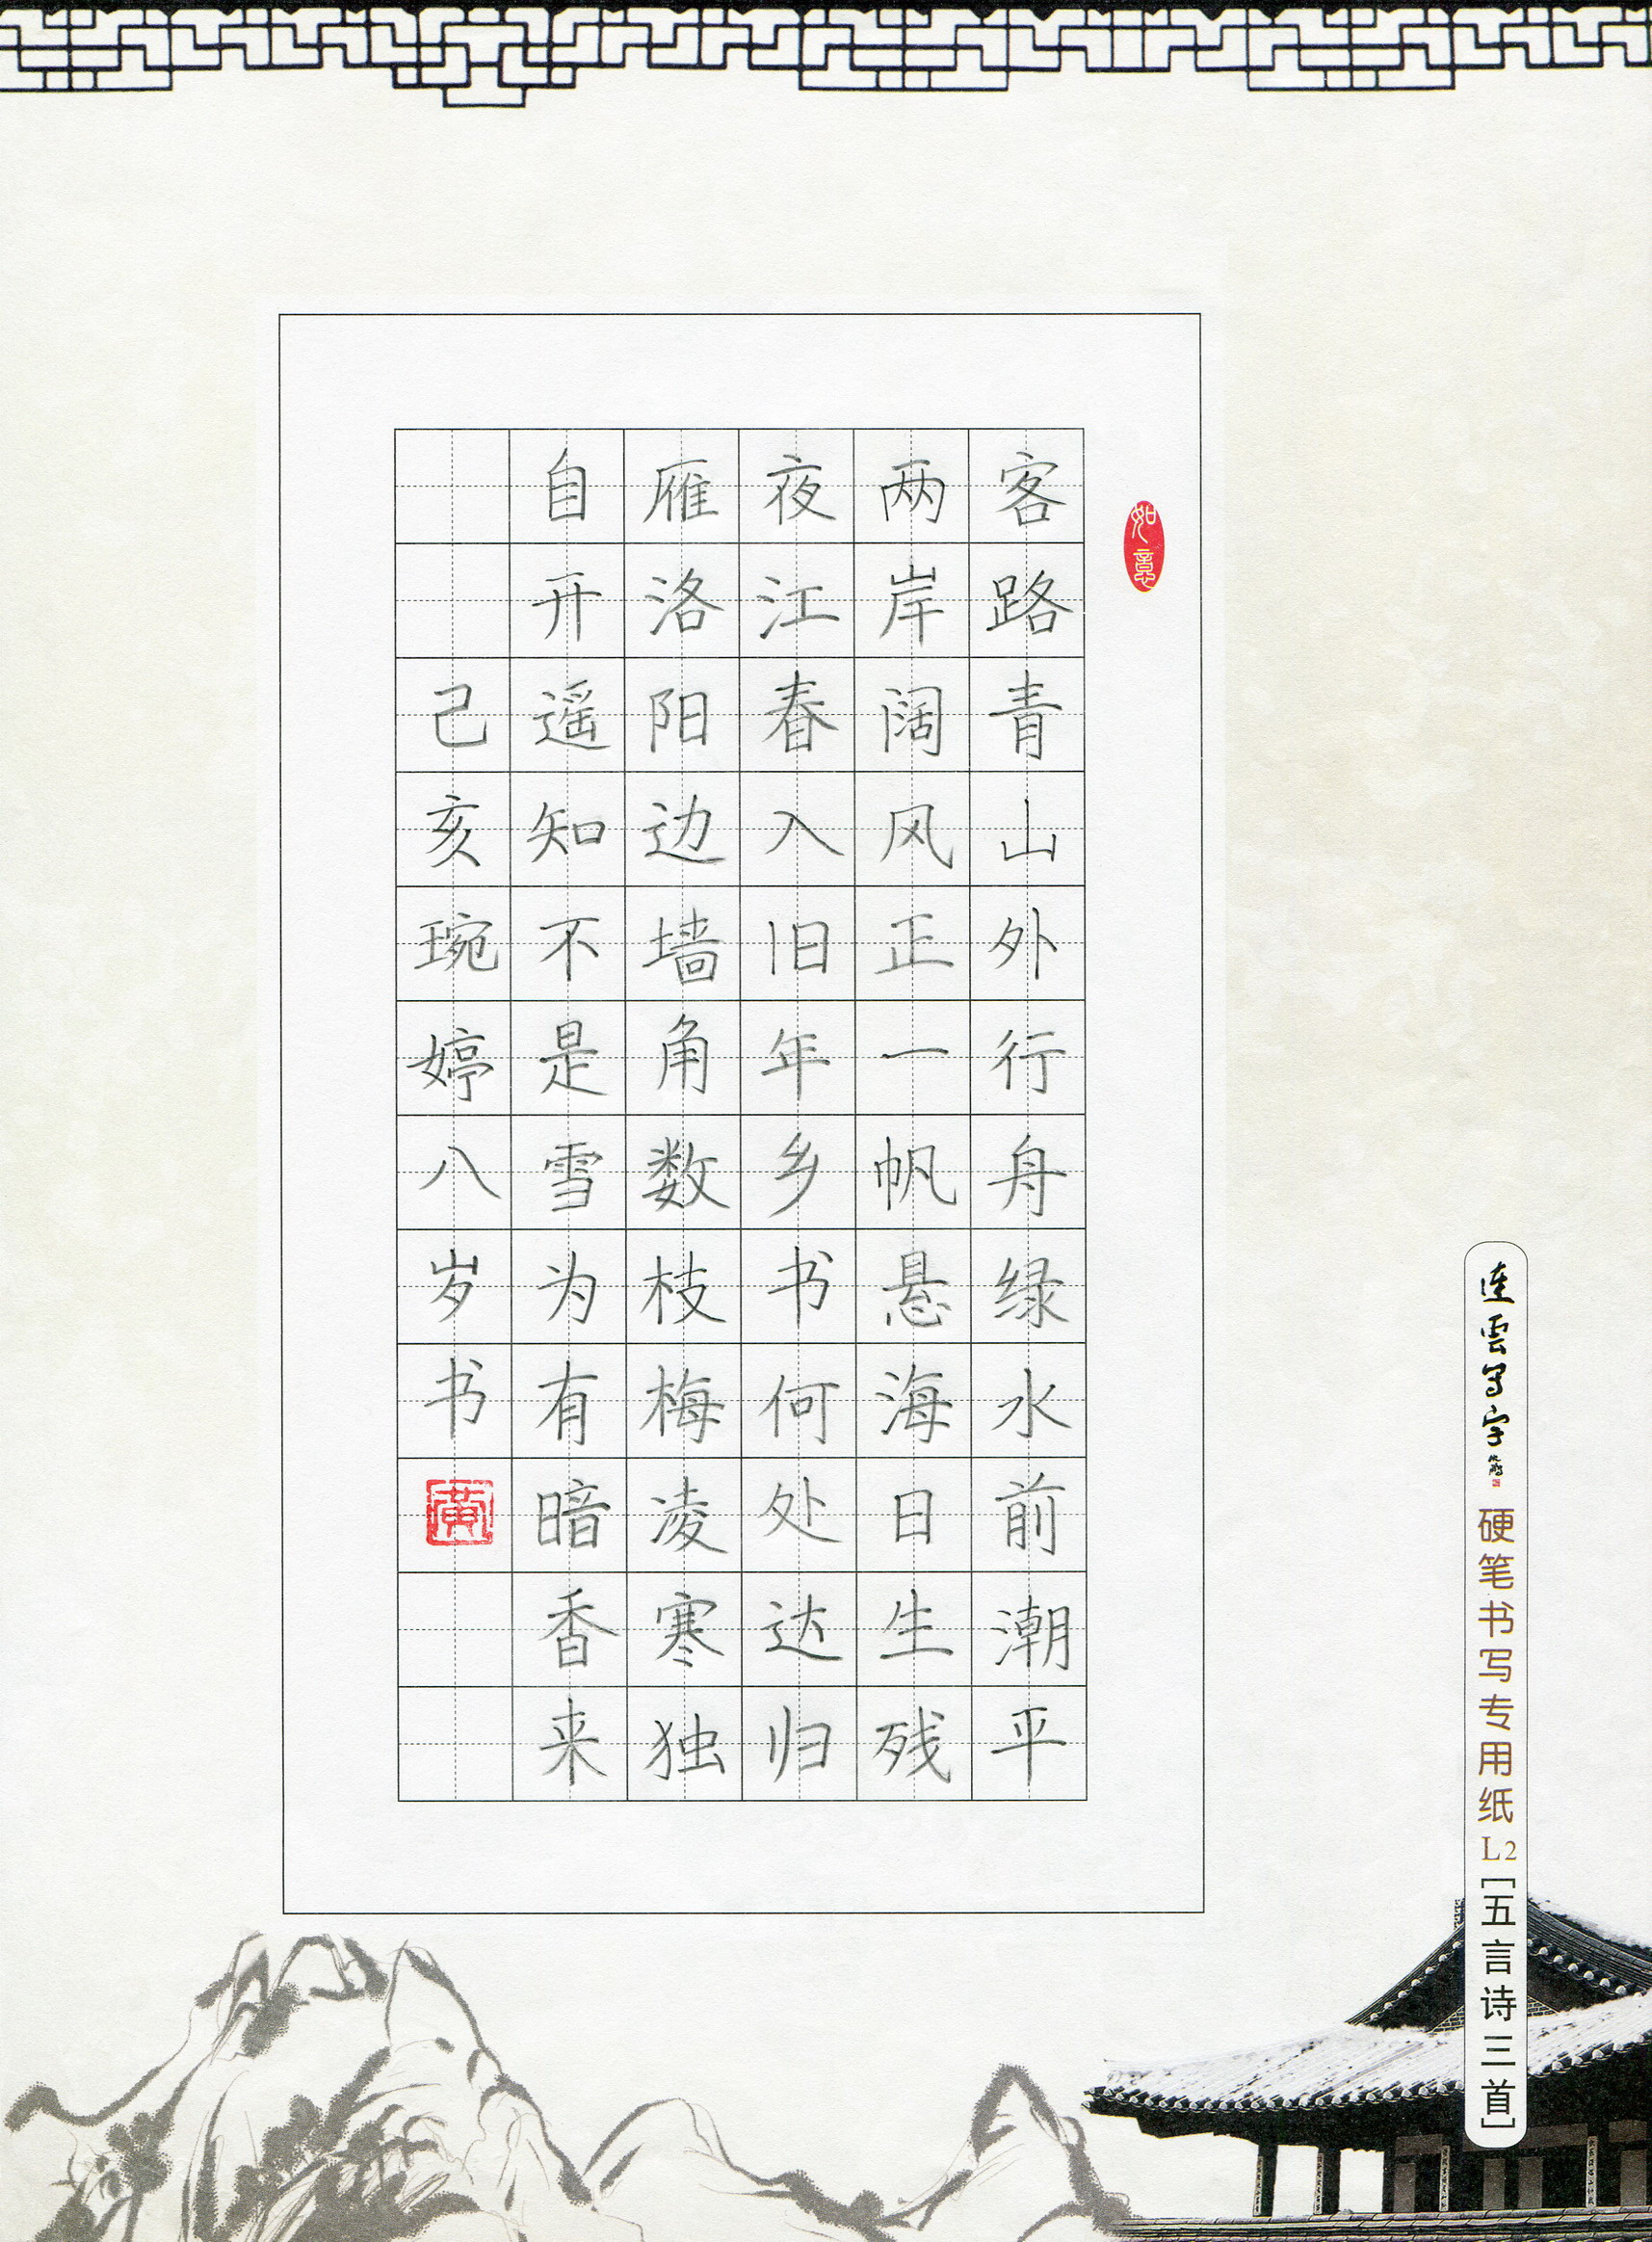 连雲写字
硬笔书写专用纸L2[五言诗三首]
如意
客路青山外行舟绿水前潮平
两岸阔风正一帆悬海日生残
夜江春入旧年乡书何处达归
雁洛阳边墙角数枝梅凌寒独
自开遥知不是雪为有暗香来
己亥琬婷八岁书
黄